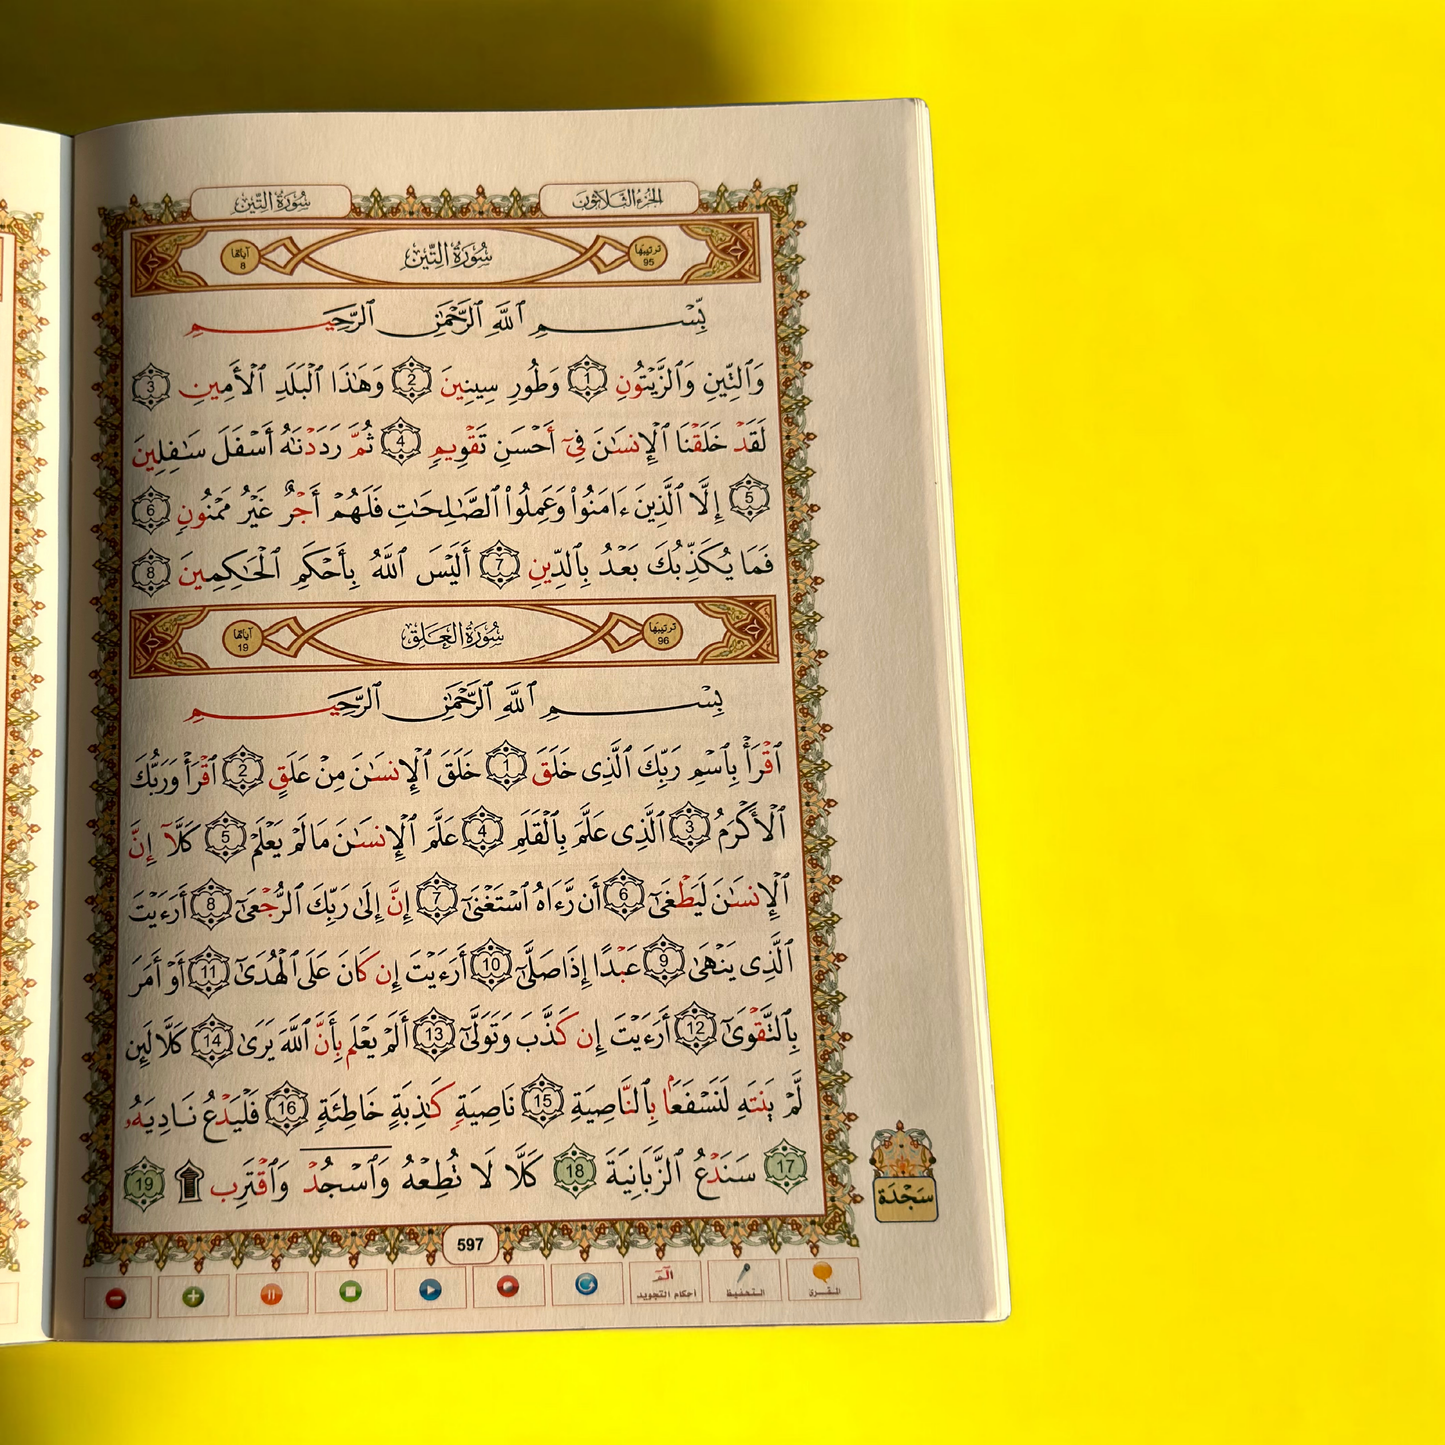 الجزء الثلاثون
سُورَةُ التِّينِ
ترتيبها 95
سُورَةُ التِّينِ
آياتها 8
بِّسۡمِ ٱللَّهِ ٱلرَّحۡمَٰنِ ٱلرَّحِيمِ
وَٱلتِّينِ وَٱلزَّيۡتُونِ 1 وَطُورِ سِينِينَ 2 وَهَٰذَا ٱلۡبَلَدِ ٱلۡأَمِينِ 3
لَقَدۡ خَلَقۡنَا ٱلۡإِنسَٰنَ فِيٓ أَحۡسَنِ تَقۡوِيمٖ 4 ثُمَّ رَدَدۡنَٰهُ أَسۡفَلَ سَٰفِلِينَ
5 إِلَّا ٱلَّذِينَ ءَامَنُواْ وَعَمِلُواْ ٱلصَّٰلِحَٰتِ فَلَهُمۡ أَجۡرٌ غَيۡرُ مَمۡنُونٖ 6
فَمَا يُكَذِّبُكَ بَعۡدُ بِٱلدِّينِ 7 أَلَيۡسَ ٱللَّهُ بِأَحۡكَمِ ٱلۡحَٰكِمِينَ 8
ترتيبها 96
سُورَةُ العَلَقِ
آياتها 19
بِسۡمِ ٱللَّهِ ٱلرَّحۡمَٰنِ ٱلرَّحِيمِ
ٱقۡرَأۡ بِٱسۡمِ رَبِّكَ ٱلَّذِي خَلَقَ 1 خَلَقَ ٱلۡإِنسَٰنَ مِنۡ عَلَقٍ 2 ٱقۡرَأۡ وَرَبُّكَ
ٱلۡأَكۡرَمُ 3 ٱلَّذِي عَلَّمَ بِٱلۡقَلَمِ 4 عَلَّمَ ٱلۡإِنسَٰنَ مَا لَمۡ يَعۡلَمۡ 5 كَلَّآ إِنَّ
ٱلۡإِنسَٰنَ لَيَطۡغَىٰٓ 6 أَن رَّءَاهُ ٱسۡتَغۡنَىٰٓ 7 إِنَّ إِلَىٰ رَبِّكَ ٱلرُّجۡعَىٰٓ 8 أَرَءَيۡتَ
ٱلَّذِي يَنۡهَىٰ 9 عَبۡدًا إِذَا صَلَّىٰٓ 10 أَرَءَيۡتَ إِن كَانَ عَلَى ٱلۡهُدَىٰٓ 11 أَوۡ أَمَرَ
بِٱلتَّقۡوَىٰٓ 12 أَرَءَيۡتَ إِن كَذَّبَ وَتَوَلَّىٰٓ 13 أَلَمۡ يَعۡلَم بِأَنَّ ٱللَّهَ يَرَىٰ 14 كَلَّا لَئِن
لَّمۡ يَنتَهِ لَنَسۡفَعَۢا بِٱلنَّاصِيَةِ 15 نَاصِيَةٖ كَٰذِبَةٍ خَاطِئَةٖ 16 فَلۡيَدۡعُ نَادِيَهُۥ
17 سَنَدۡعُ ٱلزَّبَانِيَةَ 18 كَلَّا لَا تُطِعۡهُ وَٱسۡجُدۡۤ وَٱقۡتَرِب ۩ 19
سَجْدَة
597
المقرئ
التحفيظ
الٓمٓ
أحكام التجويد